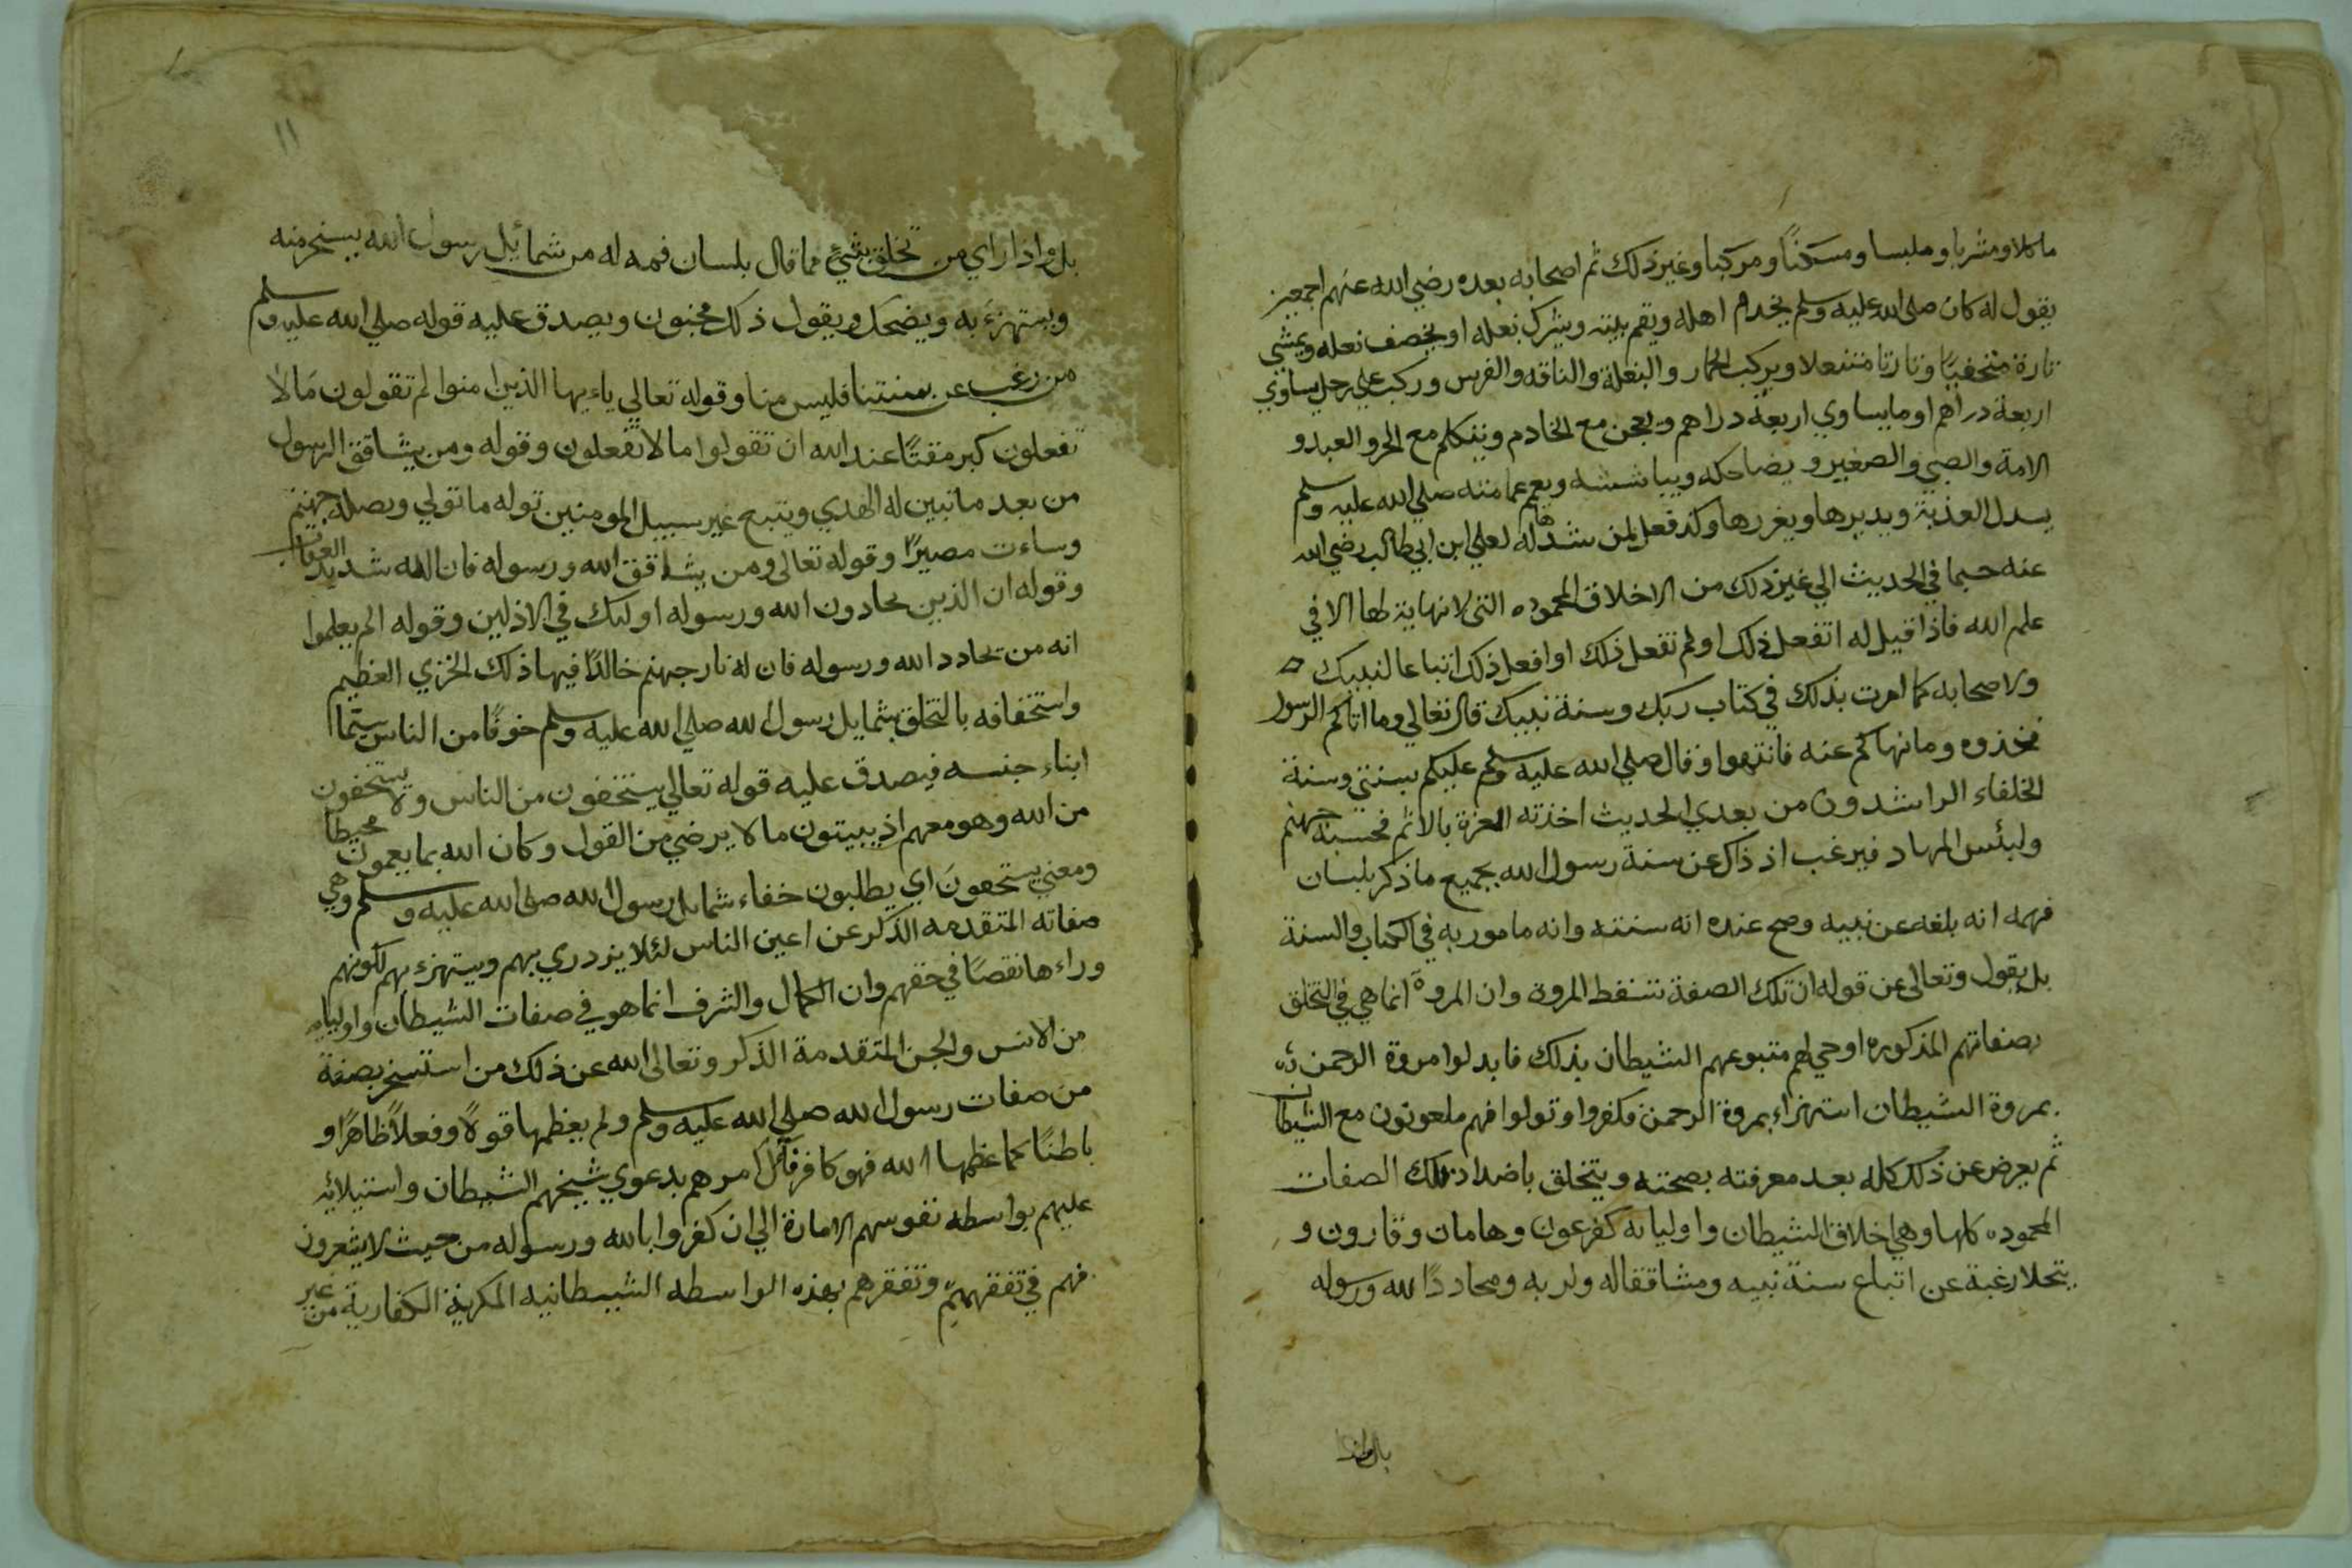 ماكلا ومشربا وملبسا ومسكنًا ومركبا وغير ذلك ثم اصحابه بعده رضي الله عنهم اجمعين
يقول له كان صلى الله عليه وسلم يخدم اهله ويقم بيته ويشرك نعله او يخصف نعله ويمشي
تارة متحفيًا وتارتا متنعلا ويركب الحمار والبغلة والناقه والفرس وركب علي رحل يساوي
اربعة دراهم او ما يساوي اربعة دراهم ويعجن مع الخادم ويتكلم مع الحر والعبد و
الامة والصبي والصغير ويضاحكه ويباششه ويعم عمامته صلي الله عليه وسلم
يسدل العذبة ويديرها ويغررها وكذ فعل لمن شدها له لعلي ابن ابي طالب رضي الله
عنه حسبما في الحديث الي غير ذلك من الاخلاق المحموده التى لا نهاية لها الا في
علم الله فاذا قيل له اتفعل ذلك او لم تفعل ذلك او افعل ذلك اتباعا لنبيك
ولاصحابه كما امرت بذلك في كتاب ربك وسنة نبيك قال تعالي وما اتاكم الرسول
فخذوه وما نهاكم عنه فانتهوا وقال صلي الله عليه وسلم عليكم بسنتي وسنة
الخلفاء الراشدون من بعدي الحديث اخذته العزة بالاثم فحسبه جهنم
ولبئس المهاد فيرغب اذ ذاك عن سنة رسول الله بجميع ما ذكر بلسان
فهمه انه بلغه عن نبيه وصح عنده انه سنته وانه مامور به في الكتاب والسنة
بل يقول وتعالى عن قوله ان تلك الصفة تسقط المروة وان المروة انما هي في التخلق
بصفاتهم المذكوره اوحي لهم متبوعهم الشيطان بذلك فابدلوا مروة الرحمن
بمروة الشيطان استهزاء بمروة الرحمن فكفروا وتولوا فهم ملعونون مع الشيطان
ثم يعرض عن ذلك كله بعد معرفته بصحته ويتخلق باضداد تلك الصفات
المحموده كلها وهي اخلاق الشيطان واوليائه كفرعون وهامان وقارون و
يتحلا رغبة عن اتباع سنة نبيه ومشاققا له ولربه ومحاددًا لله ورسوله
بل واذا
١١
بل واذا راي من تخلق بشيء مما قال بلسان فهمه له من شمائل رسول الله يسخر منه
ويستهزء به ويضحك ويقول ذلك مجنون ويصدق عليه قوله صلي الله عليه وسلم
من رغب عن سنتنا فليس منا وقوله تعالي ياءيها الذين امنوا لم تقولون ما لا
تفعلون كبر مقتًا عند الله ان تقولوا ما لا تفعلون وقوله ومن يشاقق الرسول
من بعد ما تبين له الهدي ويتبع غير سبيل المومنين نوله ما تولي ونصله جهنم
وساءت مصيرًا وقوله تعالى ومن يشاقق الله ورسوله فان الله شديد العقاب
وقوله ان الذين يحادون الله ورسوله اوليك في الاذلين وقوله الم يعلموا
انه من يحادد الله ورسوله فان له نار جهنم خالدًا فيها ذلك الخزي العظيم
واستخفافه بالتخلق بشمايل رسول الله صلي الله عليه وسلم خوفًا من الناس سيما
ابناء جنسه فيصدق عليه قوله تعالي يستخفون من الناس ولا يستخفون
من الله وهو معهم اذ يبيتون ما لا يرضي من القول وكان الله بما يعمون محيطا
ومعني يستخفون اي يطلبون خفاء شمايل رسول الله صلى الله عليه وسلم وهي
صفاته المتقدمه الذكر عن اعين الناس لئلا يزدري بهم ويستهزء بهم لكونهم
وراءها نقصًا في حقهم وان الكمال والشرف انما هو في صفات الشيطان واوليايه
من الانس والجن المتقدمة الذكر وتعالى الله عن ذلك من استسخر بصفة
من صفات رسول الله صلي الله عليه وسلم ولم يعظمها قولاً وفعلاً ظاهرًا و
باطنًا كما عظمها الله فهو كافر فآل امرهم بدعوي شيخهم الشيطان واستيلائه
عليهم بواسطه نفوسهم الامارة الي ان كفروا بالله ورسوله من حيث لا يشعرون
فهم في تفقههم وتفقرهم بهذه الواسطه الشيطانيه المكرية الكفارية من غير